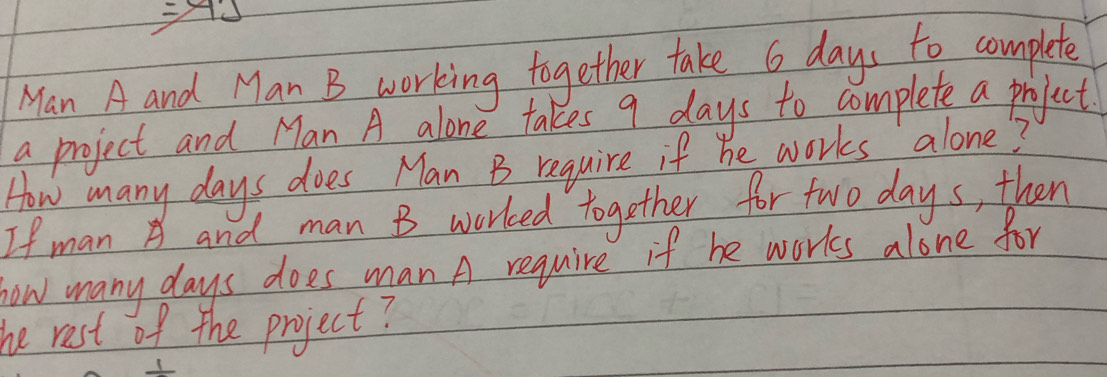 Man A and Man B working together take 6 days to complete
a project and Man A alone takes 9 days to complete a project.
How many days does Man B require if he works alone?
If man A and man B worked together for two days, then
how many days does man A require if he works alone for
he rest of the project?